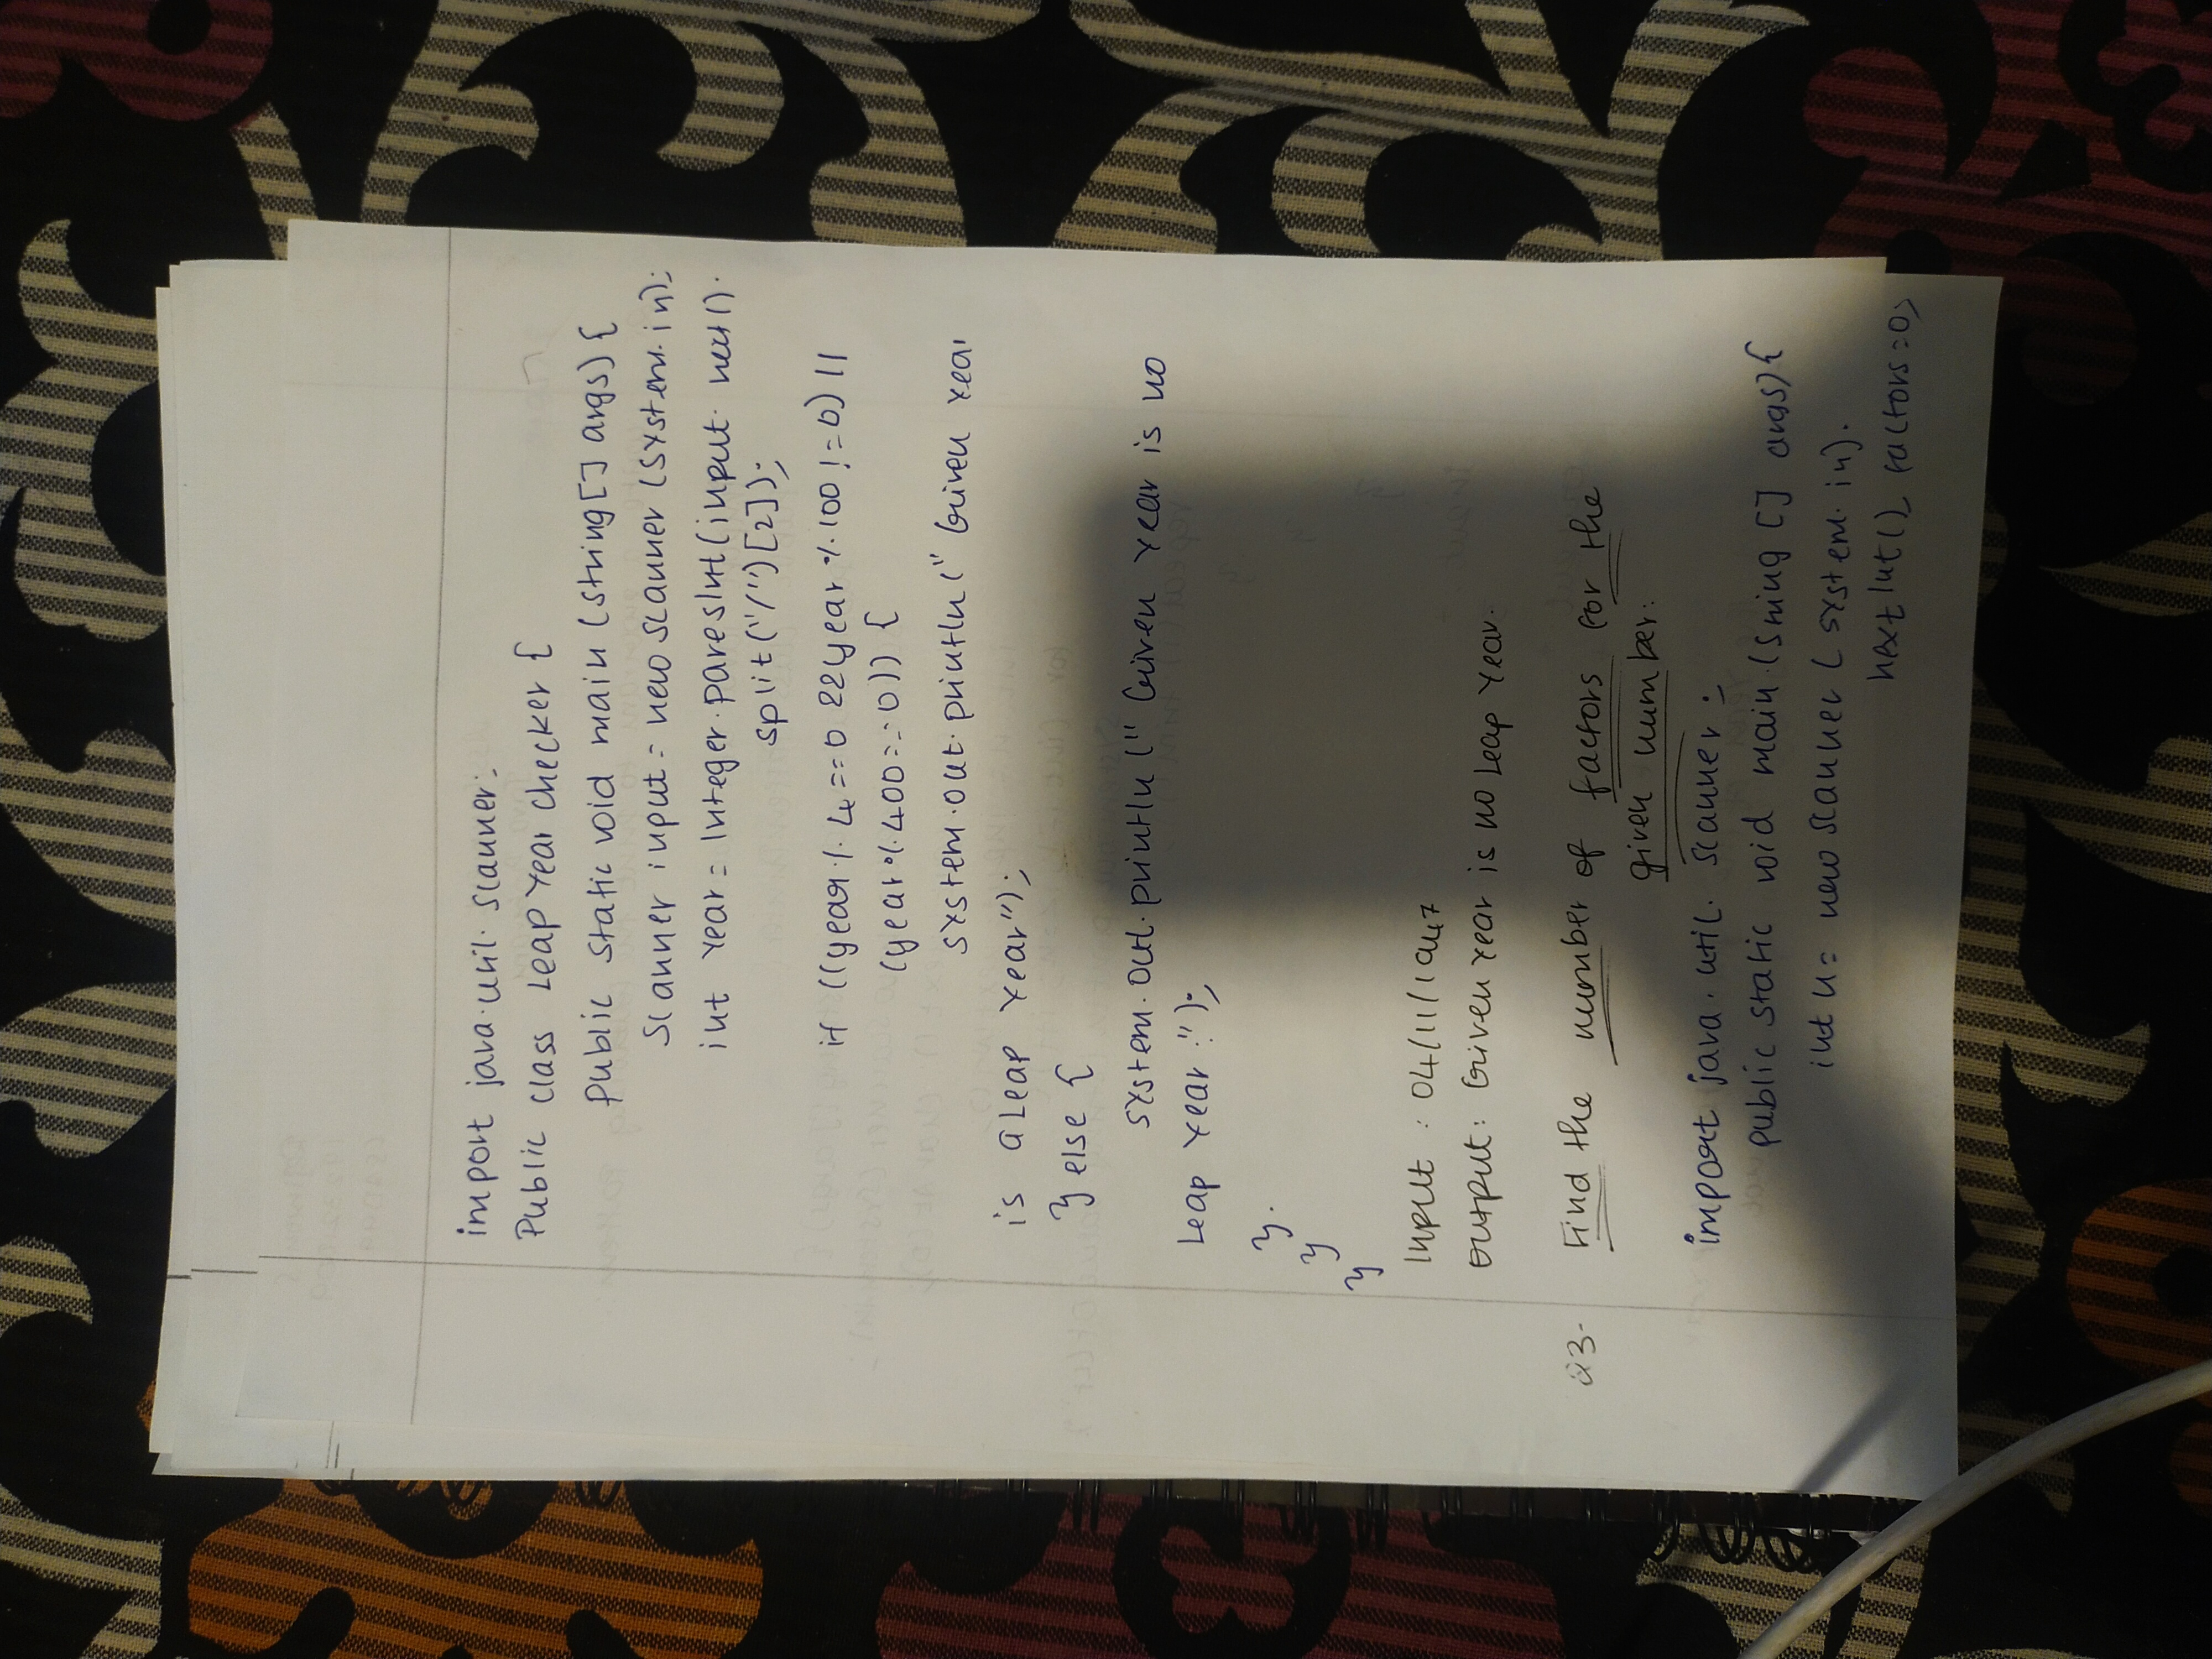 import java.util.scanner;
Public class Leap Year checker {
public static void main (string[] args) {
Scanner input = new scanner (system.in);
int Year = Integer.paresInt(input. next().
split("/")[2]);
if ((year % 4 == 0 &&year % 100 != 0) ||
(year % 400 == 0)) {
system.out.println (" Given Year
is a Leap Year");
} else {
system.out.println (" Given Year is no
Leap Year .");
}.
}
}
Input : 04/11/1947
output: Given Year is no Leap Year.
Q3- Find the number of factors for the
given number:
import java.util. scanner;
public static void main (String [] args) {
int n = new scanner (system.in).
next Int(), factors = 0;